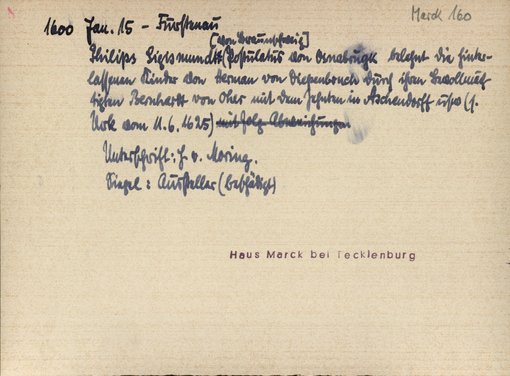 Marck 160
1600 Jan. 15 - Fürstenau
[von Braunschweig]
Philips Sigismundt Postulatus von Osnabrugk belehnt die hinter-
lassenen Kinder von Herman von Diepenbruch durch ihren Bevollmäch-
tigten Bernhardt von Oher mit dem Zehnten in Aschendorff usw (s.
Urk vom 11.6.1625) mit folg Abweichungen
Unterschrift: H. v. Moring.
Siegel: Aussteller (beschädigt)
Haus Marck bei Tecklenburg